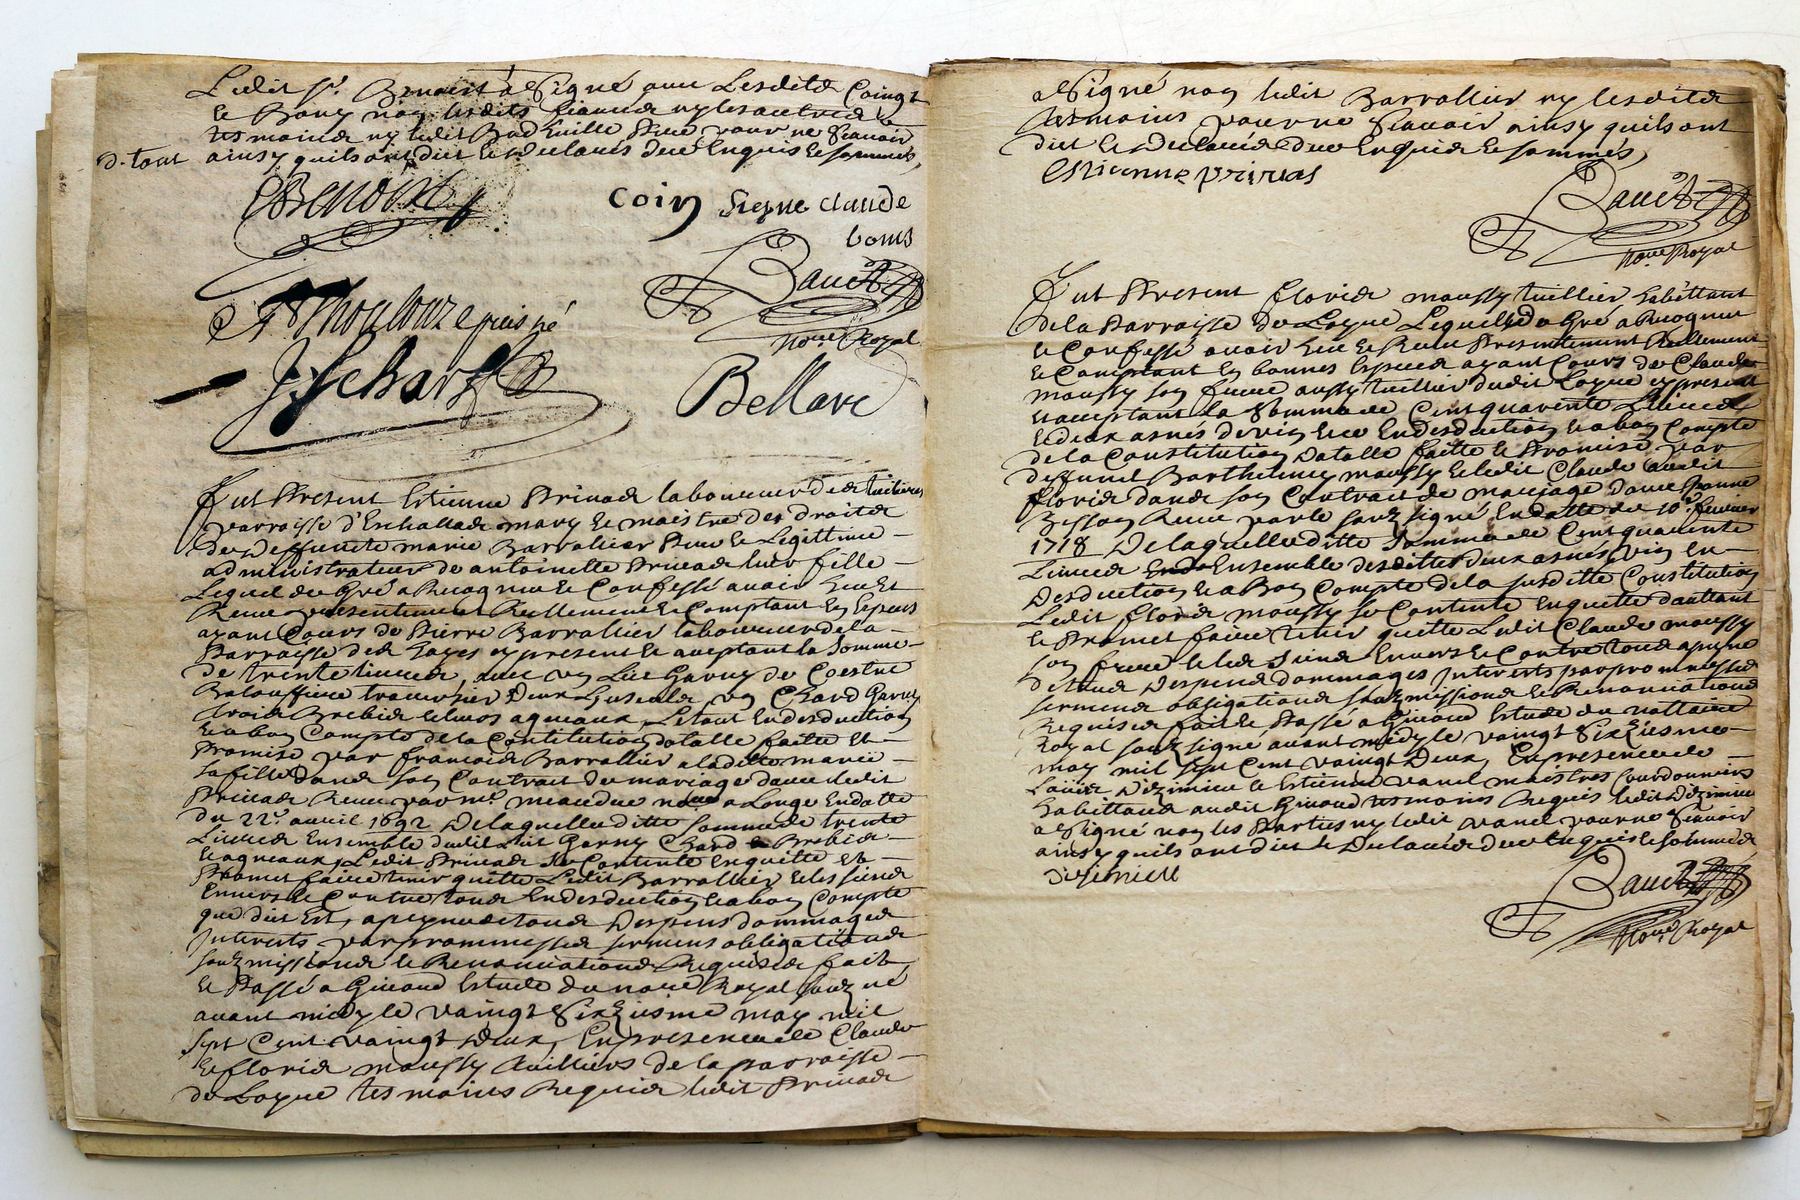 Ledit Sr. Benoist a Signé avec Lesdits Coingt
et Bony non lesdits fiances ny les autres
tesmoings ny ledit pour ne Scavoir
d. tout
ainsy quils ont dit et declaré de ce Enquis et sommés
CBenoist
Coin
Siegne claude
bonis
Bauet
Nore. Royal
Thoulouze puis né
Bellave
Fut Present Estienne Privas laboureur des tuilieres
parroisse d'Eschallas mary et maistre des droits
de deffuncte marie Barrallier Pere et Legittime
administrateur de antoinette Privas leur fille
Lequel de Gré a Recognu et Confessé avoir Eu et
Receu presentement Reellement et Comptant En Especes
ayant Cours de Pierre Barrallier laboureur de la
Parroisse des hayes cy present et aceptant la somme
de trente livres, avec un Lict Garny de Coestre
traversier Deux un Chard Garny
trois Brebis et leurs agneaux, Le tout En desduction
et a bon Compte de la Constitution dotalle faitte et
Promise par francois Barrallier a laditte marie
sa fille dans son Contrait de mariage avec ledit
Privas Receu par Me. nore a Longe En datte
du 22e. avril 1692 De laquelle ditte somme de trente
Livres Ensemble dudit Lict Garny Chard Brebis
et agneaux, Ledit Privas se Contente En quitte et
Promet faire tenir quitte Ledit Barrallier et les siens
Envers et Contre tous En desduction et a bon Compte
que dit Est, a peyne de tous Despens dommages
Interets par prommesses serment obligations
soubzmissions et Renonciations Requises fait
et Passé a Givors Estude du nore Royal soubzné
avant midy le vaingt Sixziesme may mil
sept Cent vaingt Deux, En presence de Claude
et floris moussy tuilliers de la parroisse
de Loyre tesmoins Requis ledit Privas
a Signé non ledit Barrallier ny lesdits
tesmoins pour ne Scavoir ainsy quils ont
dit et Declairé de ce Enquis et sommés
Estienne privas
Bauet
Nore Royal
Fut Present floris moussy tuillier habittant
de la Parroisse de Loyre Lequel de Gré a Recognu
et Confessé avoir Eu et Receu Presentement Reellement
et Comptant En bonnes Especes ayant Cours de Claude
moussy son frere aussy tuillier dudit Loyre cy present
et aceptant la Somme de Cent quarente Livres
et deux asnés de vin et ce En desduction et a bon Compte
de la Constitution dotalle faitte et Promise par
deffunt Barthelemy moussy et ledit Claude audit
floris dans son Contrait de mariage avec Jeanne
Besson Receu par le soubzsigné En datte du 10e. fevrier
1718 De laquelle ditte Somme de Cent quarente
Livres Ensemble desdittes deux asnés vin En
Desduction et a Bon Compte de la susditte Constitution
Ledit floris moussy se Contente En quitte d'autant
et Promet faire tenir quitte Ledit Claude moussy
son frere et les siens Envers et Contre tous a peyne
de tous Despens dommages Interets par prommesses
serment obligations soubzmissions et Renonciations
Requises fait et Passé a Givors Estude du nottaire
Royal soubzsigné avant midy le vaingt Sixziesme
may mil sept Cent vaingt Deux, En presence de
Louis Dizimieu et Estienne vanel maistres Courdonniers
habittans audit Givors tesmoins Requis ledit Dizimieu
a Signé non les Parties ny ledit vanel pour ne Scavoir
ainsy quils ont dit et Declairé de ce Enquis et sommés
Bauet
Nore. Royal